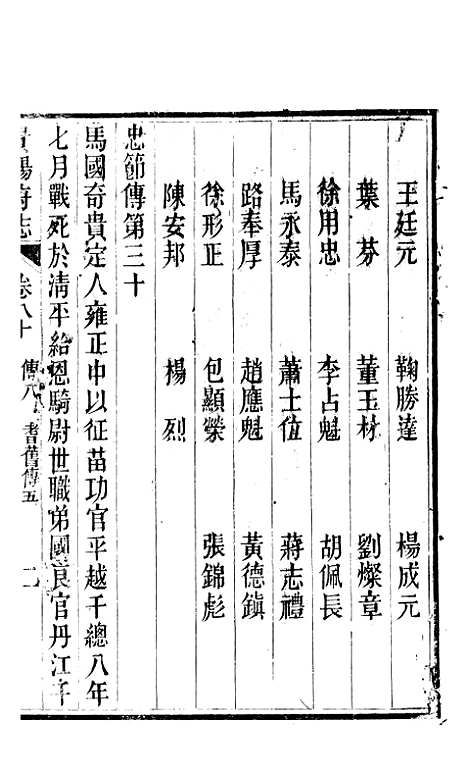 王廷元　鞠勝達　楊成元
葉芬　董玉材　劉燦章
徐用忠　李占魁　胡佩長
馬永泰　蕭士位　蔣志禮
路奉厚　趙應魁　黃德鎮
徐形正　包顯榮　張錦彪
陳安邦　楊烈
忠節傳第三十
馬國奇貴定人雍正中以征苗功官平越千總八年
七月戰死於清平給恩騎尉世職弟國良官丹江千
陽府志　卷八十　傳八　耆舊傳五　二